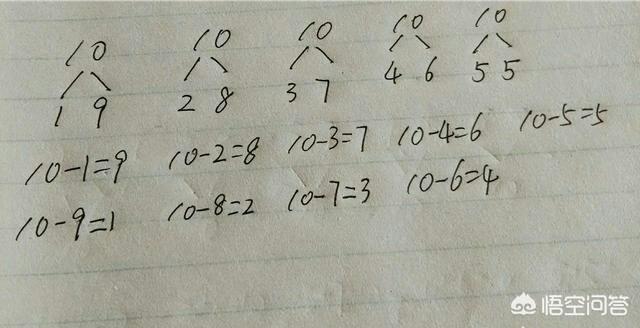 10 10 10 10 10
1 9 2 8 3 7 4 6 5 5
10-1=9 10-2=8 10-3=7 10-4=6 10-5=5
10-9=1 10-8=2 10-7=3 10-6=4
悟空问答